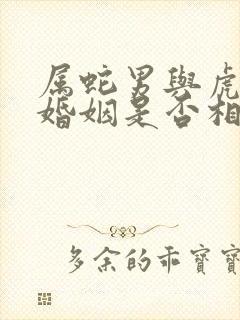 属蛇男與虎
婚姻是否相
多余的乖寶寶